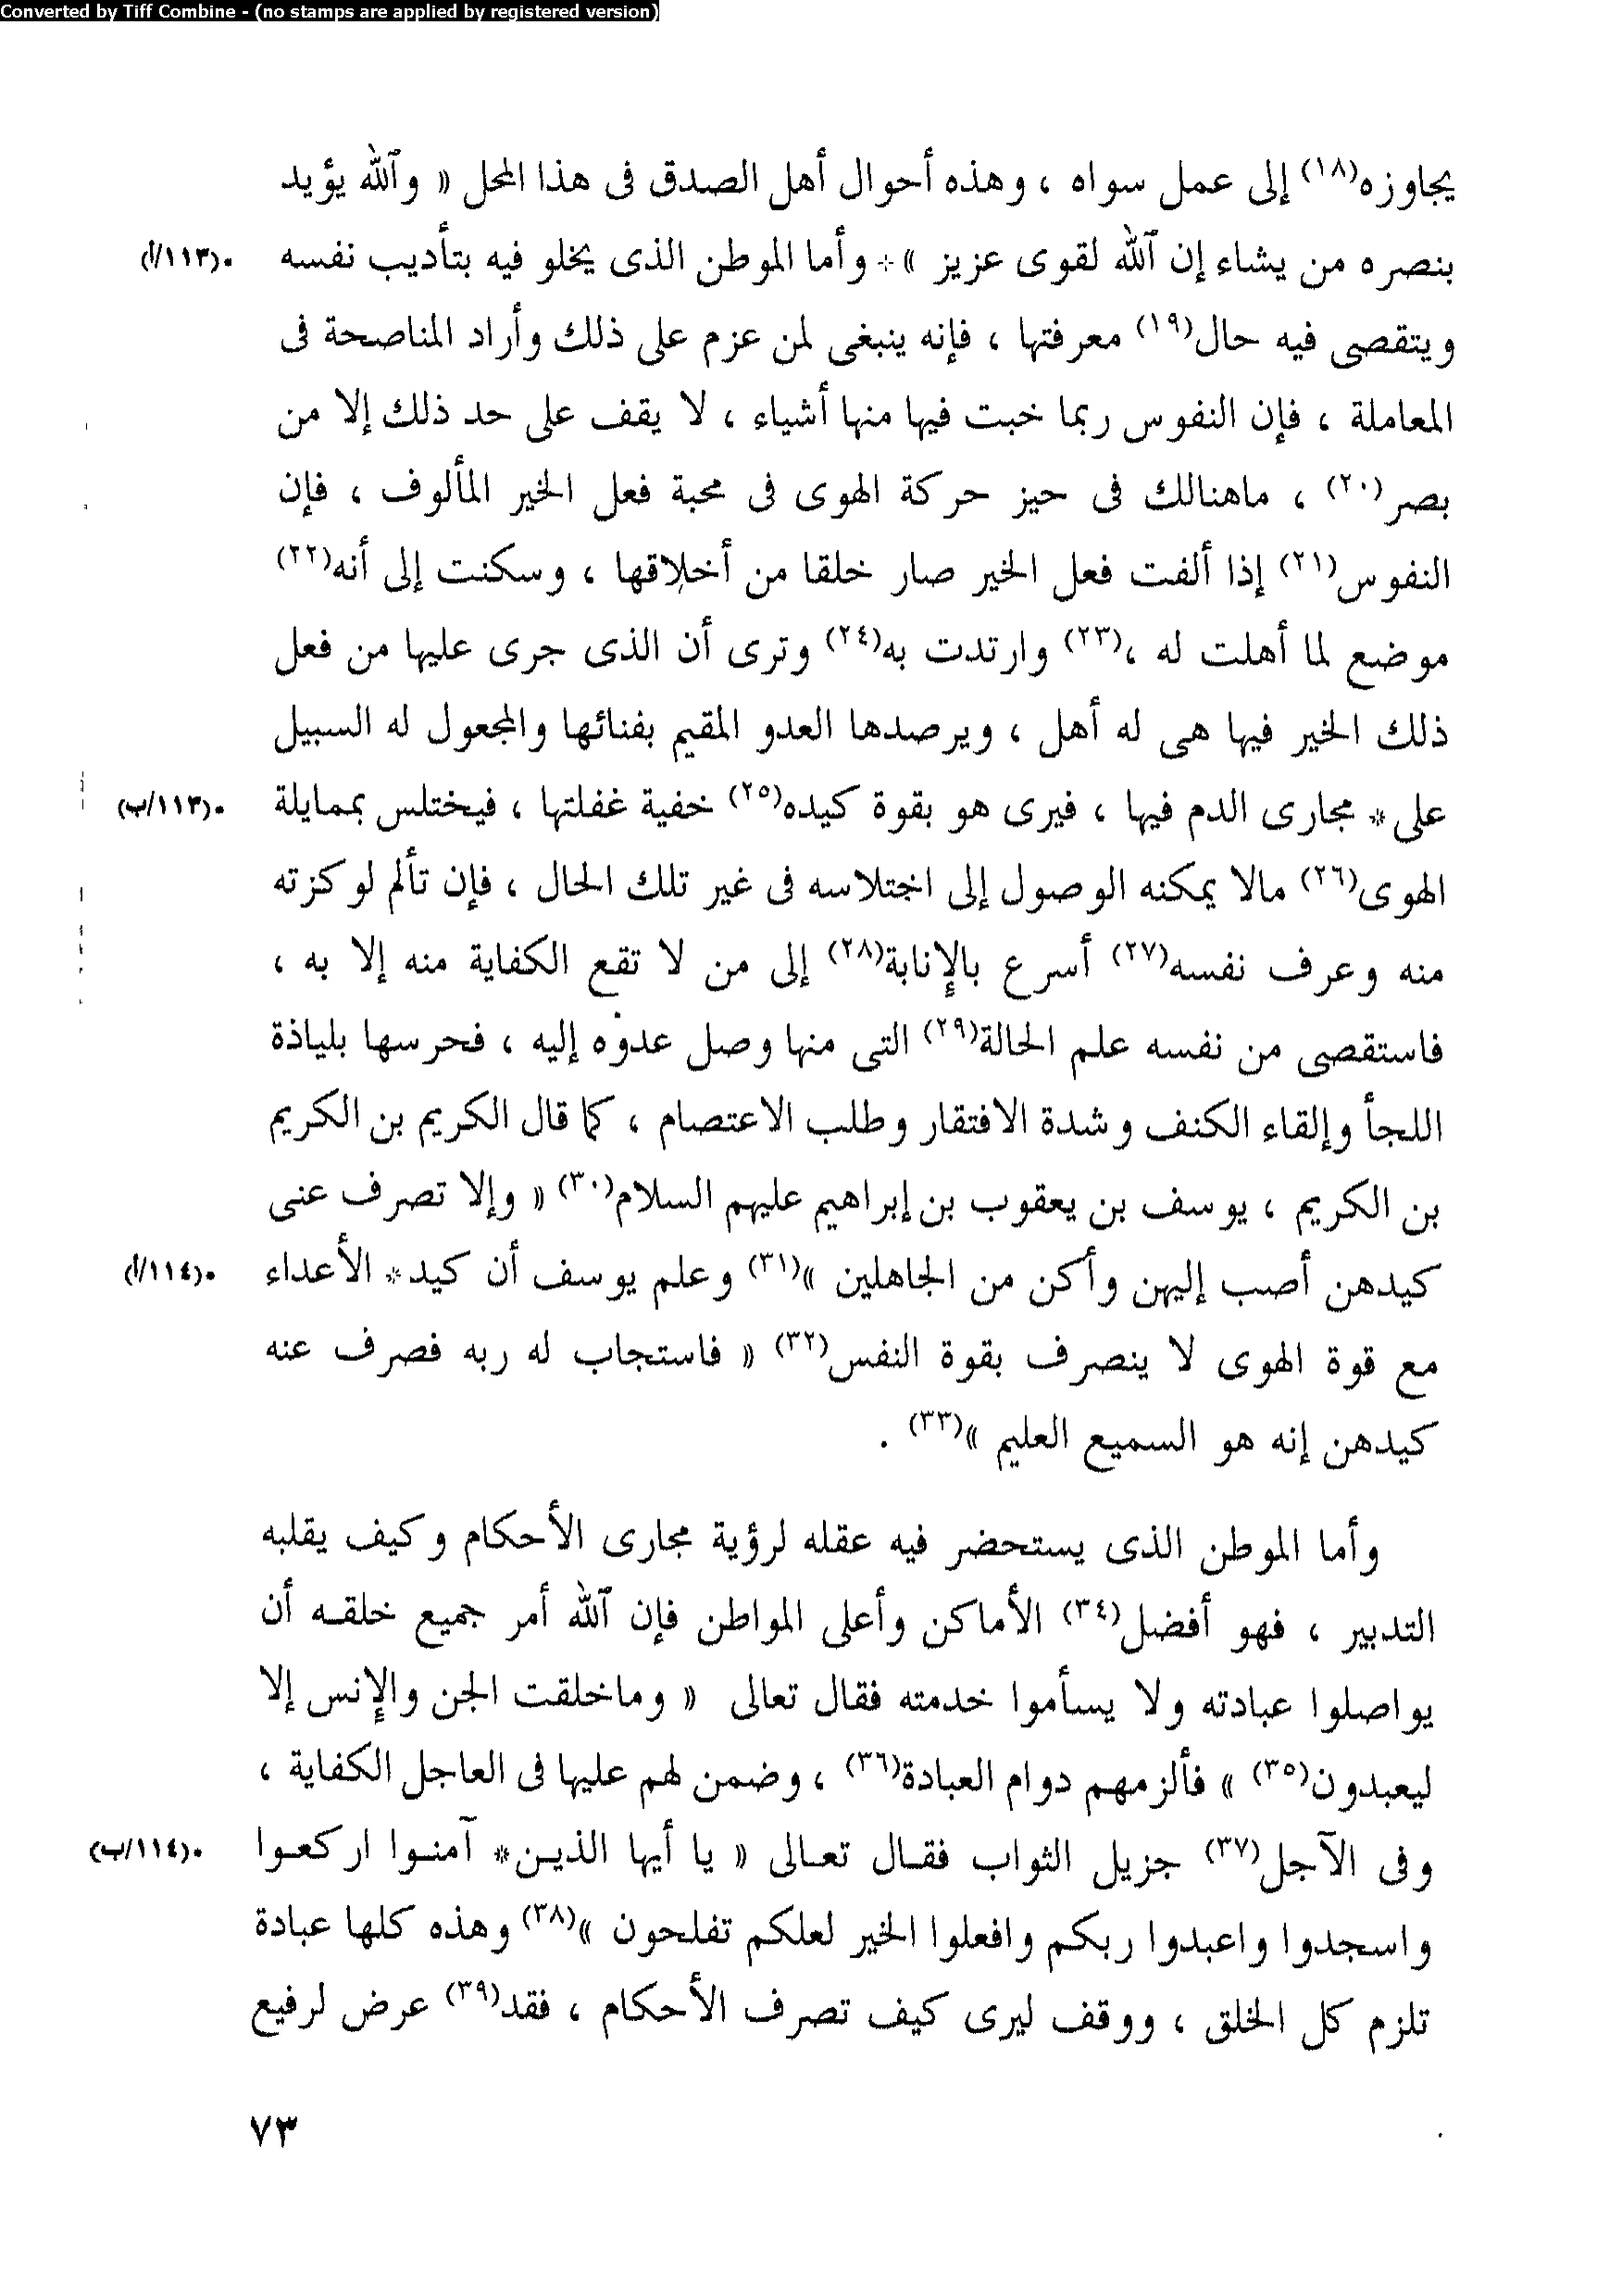 Converted by Tiff Combine - (no stamps are applied by registered version)
يجاوزه(١٨) إلى عمل سواه ، وهذه أحوال أهل الصدق فى هذا المحل « والله يؤيد
بنصره من يشاء إن الله لقوى عزيز »* وأما الموطن الذى يخلو فيه بتأديب نفسه •(١١٣/أ)
ويتقصى فيه حال(١٩) معرفتها ، فإنه ينبغى لمن عزم على ذلك وأراد المناصحة فى
المعاملة ، فإن النفوس ربما خبت فيها منها أشياء ، لا يقف على حد ذلك إلا من
بصر(٢٠) ، ماهنالك فى حيز حركة الهوى فى محبة فعل الخير المألوف ، فإن
النفوس(٢١) إذا ألفت فعل الخير صار خلقا من أخلاقها ، وسكنت إلى أنه(٢٢)
موضع لما أهلت له ،(٢٣) وارتدت به(٢٤) وترى أن الذى جرى عليها من فعل
ذلك الخير فيها هى له أهل ، ويرصدها العدو المقيم بفنائها والمجعول له السبيل
على* مجارى الدم فيها ، فيرى هو بقوة كيده(٢٥) خفية غفلتها ، فيختلس بممايلة •(١١٣/ب)
الهوى(٢٦) مالا يمكنه الوصول إلى اختلاسه فى غير تلك الحال ، فإن تألم لوكزته
منه وعرف نفسه(٢٧) أسرع بالإنابة(٢٨) إلى من لا تقع الكفاية منه إلا به ،
فاستقصى من نفسه علم الحالة(٢٩) التى منها وصل عدوه إليه ، فحرسها بلياذة
اللجأ وإلقاء الكنف وشدة الافتقار وطلب الاعتصام ، كما قال الكريم بن الكريم
بن الكريم ، يوسف بن يعقوب بن إبراهيم عليهم السلام(٣٠) « وإلا تصرف عنى
كيدهن أصب إليهن وأكن من الجاهلين »(٣١) وعلم يوسف أن كيد* الأعداء •(١١٤/أ)
مع قوة الهوى لا ينصرف بقوة النفس(٣٢) « فاستجاب له ربه فصرف عنه
كيدهن إنه هو السميع العليم »(٣٣) .
وأما الموطن الذى يستحضر فيه عقله لرؤية مجارى الأحكام وكيف يقلبه
التدبير ، فهو أفضل(٣٤) الأماكن وأعلى المواطن فإن الله أمر جميع خلقه أن
يواصلوا عبادته ولا يسأموا خدمته فقال تعالى « وماخلقت الجن والإنس إلا
ليعبدون(٣٥) » فألزمهم دوام العبادة(٣٦) ، وضمن لهم عليها فى العاجل الكفاية ،
وفى الآجل(٣٧) جزيل الثواب فقال تعالى « يا أيها الذين* آمنوا اركعوا •(١١٤/ب)
واسجدوا واعبدوا ربكم وافعلوا الخير لعلكم تفلحون »(٣٨) وهذه كلها عبادة
تلزم كل الخلق ، ووقف ليرى كيف تصرف الأحكام ، فقد(٣٩) عرض لرفيع
٧٣